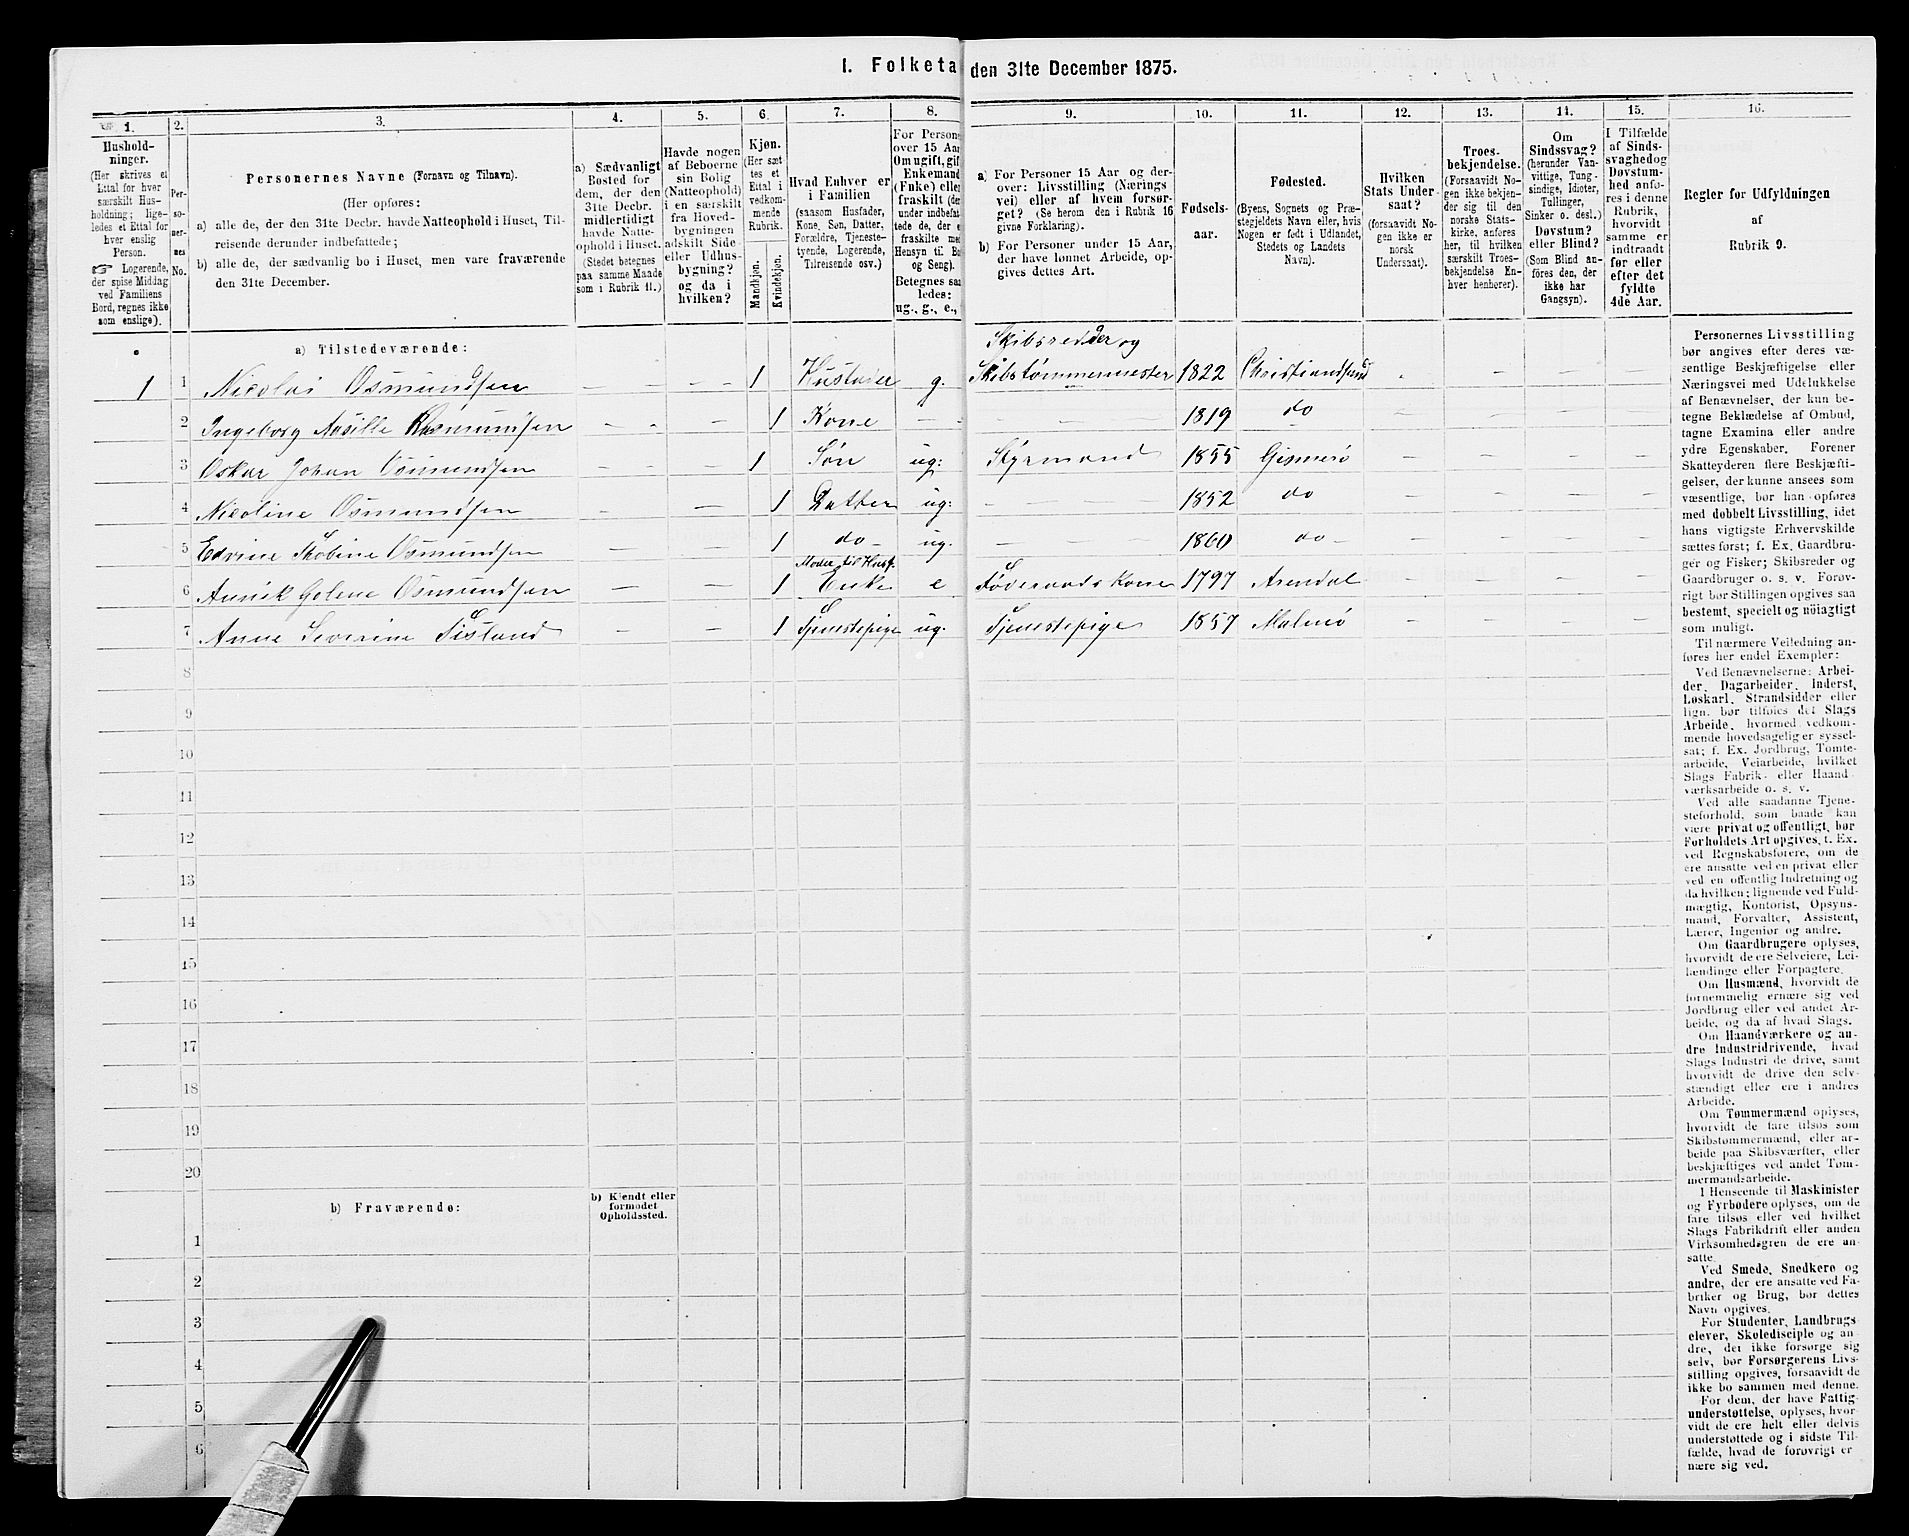 I. Folketa den 31te December 1875.
1.
Hushold-
ninger.
(Her skrives et
Ettal for hver
særskilt Hus-
holdning; lige-
ledes et Ettal for
hver enslig
Person.
☞ Logerende,
der spise Middag
ved Familiens
Bord, regnes ikke
som enslige).
2.
Per-
so-
ner-
nes
No.
3.
Personernes Navne (Fornavn og Tilnavn).
(Her opføres:
a) alle de, der den 31te Decbr. havde Natteophold i Huset, Til-
reisende derunder indbefattede;
b) alle de, der sædvanlig bo i Huset, men vare fraværende
den 31te December.
4.
a) Sædvanligt
Bosted for
dem, der den
31te Decbr.
midlertidigt
havde Natte-
ophold i Huset.
(Stedet betegnes
paa samme Maade
som i Rubrik 11.)
5.
Havde nogen
af Beboerne
sin Bolig
(Natteophold)
i en særskilt
fra Hoved-
bygningen
adskilt Side-
eller Udhus-
bygning?
og da i
hvilken?
6.
Kjøn.
(Her sæt
tes et
Ettal i
vedkom-
mende
Rubrik.
Mandkjøn.
Kvindekjøn.
7.
Hvad Enhver er
i Familien
(saasom Husfader,
Kone, Søn, Datter,
Forældre, Tjeneste-
tyende, Logerende,
Tilreisende osv.)
8.
For Person
over 15 Aar
Om ugift, gif
Enkemand
(Enke) elle
fraskilt (de
under indbefat
tede de, der e
fraskilte me
Hensyn til Bo
og Seng).
Betegnes saa
ledes:
ug., g., e.,
9.
a) For Personer 15 Aar og der-
over: Livsstilling (Nærings
vei) eller af hvem forsør-
get? (Se herom den i Rubrik 16
givne Forklaring).
b) For Personer under 15 Aar,
der have lønnet Arbeide, op-
gives dettes Art.
10.
Fødsels-
aar.
11.
Fødested.
(Byens, Sognets og Præ-
stegjeldets Navn eller, hvis
Nogen er født i Udlandet,
Stedets og Landets
Navn).
12.
Hvilken
Stats Under-
saat?
(forsaavidt No-
gen ikke er
norsk
Undersaat).
13.
Troes-
bekjendelse.
(Forsaavidt No-
gen ikke bekjen-
der sig til den
norske Stats-
kirke, anføres
her, til hvilken
særskilt Troes-
bekjendelse En-
hver henhører).
14.
Om
Sindssvag?
(herunder Van-
vittige, Tung-
sindige, Idioter,
Tullinger,
Sinker o. desl.)
Døvstum?
eller Blind?
(Som Blind an-
føres den, der
ikke har
Gangsyn).
15.
I Tilfælde
af Sinds-
svaghed og
Døvstum-
hed anfø-
res i denne
Rubrik,
hvorvidt
samme er
indtraadt
før eller
efter det
fyldte
4de Aar.
16.
Regler for Udfyldningen
af
Rubrik 9.
a) Tilstedeværende:
Skibsredder og
1 1 Nicolai Osmundsen - - - 1 Husfader g. Skibstømmermester 1822 Christiansand
2 Ingeborg Osmundsen - - - 1 Kone - - 1819 do
3 Oskar Johan Osmundsen - - - 1 Søn ug: Styrmand 1855 Gismerö
4 Nicoline Osmundsen - - 1 Datter ug: - 1852 do
5 Edvine Osmundsen - - 1 do - ug. - 1860 do -
Moder til Husf.
6 Osmundsen - - 1 Enke e Föderaads Kone 1797 Arendal
7 Anne Severine Fisland - - 1 Tjenestepige ug. Tjenestepige 1857 Malmö
8
9
10
11
12
13
14
15
16
17
18
19
20
b) Fraværende:
b) Kjendt eller
formodet
Opholdssted.
1
2
3
4
5
6
Personernes Livsstilling
bør angives efter deres væ-
sentlige Beskjæftigelse eller
Næringsvei med Udelukkelse
af Benævnelser, der kun be-
tegne Beklædelse af Ombud,
tagne Examina eller andre
ydre Egenskaber. Forener
Skatteyderen flere Beskjæfti-
gelser, der kunne ansees som
væsentlige, bør han opføres
med dobbelt Livsstilling, idet
hans vigtigste Erhvervskilde
sættes først; f. Ex. Gaardbru-
ger og Fisker; Skibsreder og
Gaardbruger o. s. v. Forøv-
rigt bør Stillingen opgives saa
bestemt, specielt og nöiagtigt
som muligt.
Til nærmere Veiledning an-
føres her endel Exempler:
Ved Benævnelserne: Arbei-
der, Dagarbeider, Inderst,
Løskarl, Strandsidder eller
lign. bør tilføies det Slags
Arbeide, hvormed vedkom-
mende hovedsagelig er syssel-
sat; f. Ex. Jordbrug, Tomte-
arbeide, Veiarbeide, hvilket
Slags Fabrik- eller Haand-
værksarbeide o. s. v.
Ved alle saadanne Tjene-
steforhold, som baade kan
være privat og offentligt, bør
Forholdets Art opgives, f. Ex.
ved Regnskabsførere, om de
ere ansatte ved en privat eller
ved en offentlig Indretning og
da hvilken; lignende ved Fuld-
mægtig, Kontorist, Opsyns-
mand, Forvalter, Assistent,
Lærer, Ingeniør og andre.
Om Gaardbrugere oplyses,
hvorvidt de ere Selveiere, Lei-
lændinge eller Forpagtere.
Om Husmænd, hvorvidt de
fornemmelig ernære sig ved
Jordbrug eller ved andet Ar-
beide, og da af hvad Slags.
Om Haandværkere og an-
dre Industridrivende, hvad
Slags Industri de drive, samt
hvorvidt de drive den selv-
stændigt eller ere i andres
Arbeide.
Om Tømmermænd oplyses,
hvorvidt de fare tilsøs som
Skibstømmermænd, eller ar-
beide paa Skibsværfter, eller
beskjæftiges ved andet Tøm-
mermandsarbeide.
I Henseende til Maskinister
og Fyrbødere oplyses, om de
fare tilsøs eller ved hvilket
Slags Fabrikdrift eller anden
Virksomhedsgren de ere an-
satte.
Ved Smede, Snedkere og
andre, der ere ansatte ved Fa-
briker og Brug, bør dettes
Navn opgives.
For Studenter, Landbrugs-
elever, Skoledisciple og an-
dre, der ikke forsørge sig
selv, bør Forsørgerens Livs-
stilling opgives, forsaavidt de
ikke bo sammen med denne.
For dem, der have Fattig-
understøttelse, oplyses, hvor-
vidt de ere helt eller delvis
understøttede og i sidste Til-
fælde, hvad de forøvrigt er
nære sig ved.